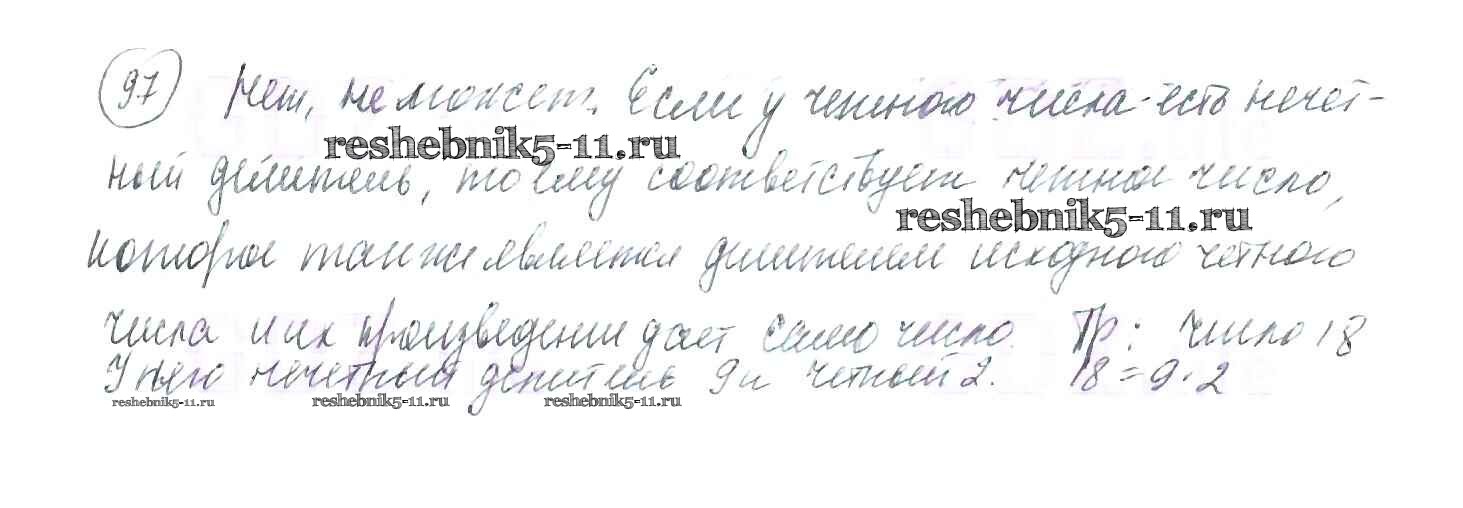 97 Нет, не может. Если у четного числа есть нечет-
reshebnik5-11.ru
ный делитель, то ему соответствует четное число,
reshebnik5-11.ru
которое также является делителем исходного четного
числа и их произведение дает само число. Пр: число 18
У него нечетный делитель 9 и четный 2. 18 = 9 · 2
reshebnik5-11.ru reshebnik5-11.ru reshebnik5-11.ru